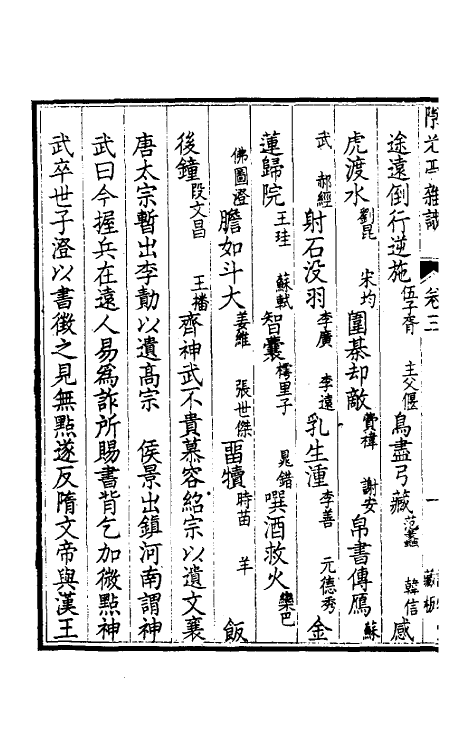 隙光亭雜識 卷三 一 藏板
途遠倒行逆施 伍子胥 主父偃 鳥盡弓藏 范蠡 韓信 感
虎渡水 劉昆 宋均 圍棊却敵 費禕 謝安 帛書傳鴈 蘇
武 郝經 射石没羽 李廣 李遠 乳生湩 李善 元德秀 金
蓮歸院 王珪 蘇軾 智囊 樗里子 晁錯 噀酒救火 欒巴
佛圖澄 膽如斗大 姜維 張世傑 畱犢 時苗 羊 飯
後鐘 段文昌 王播 齊神武不貴慕容紹宗以遺文襄
唐太宗暫出李勣以遺髙宗 侯景出鎮河南謂神
武曰今握兵在遠人易為詐所賜書背乞加微點神
武卒世子澄以書徵之見無點遂反隋文帝與漢王